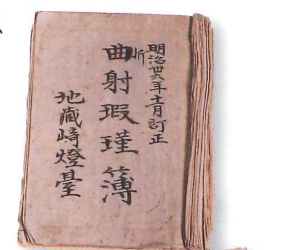 明治卅六年十一月訂正
曲射瑕瑾簿
地藏崎燈臺